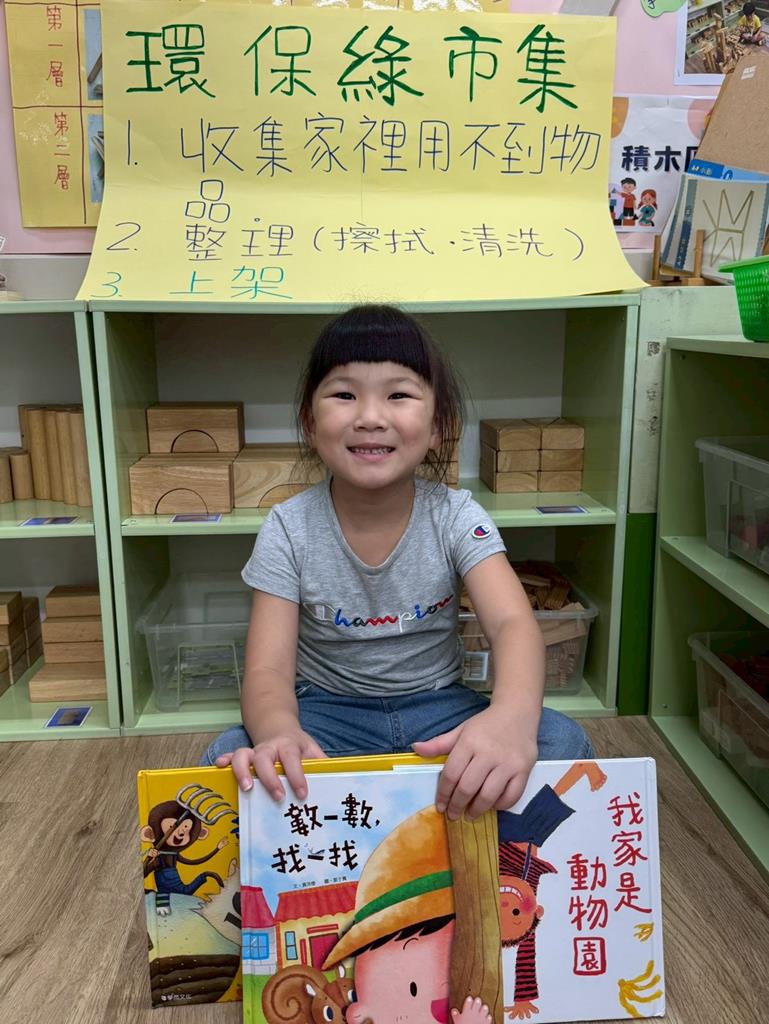 第一層
第二層
環保綠市集
1. 收集家裡用不到物
品.
2. 整理(擦拭.清洗)
3. 上架
積木
Champion
數一數,
找一找
我家是
動物園